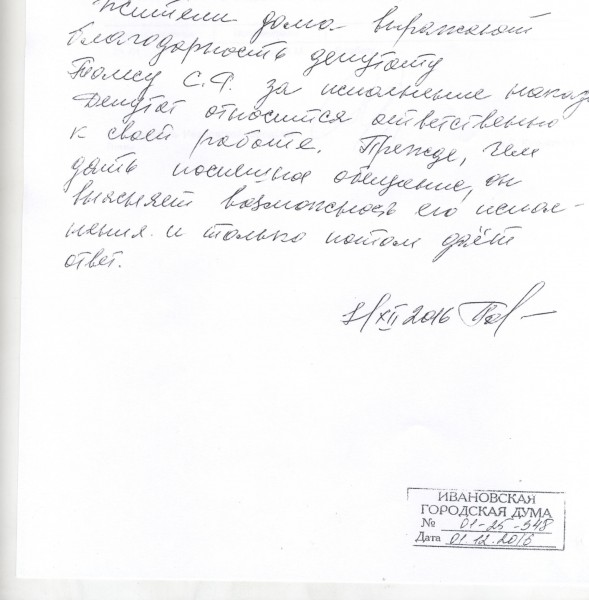 Жители дома выражают
благодарность депутату
С.Ф. за исполнение наказа
Депутат относится ответственно
к своей работе. Прежде, чем
дать поспешное обещание, он
выясняет возможность его испол-
нения и только потом даёт
ответ.
XII 2016
ИВАНОВСКАЯ
ГОРОДСКАЯ ДУМА
№ 01-25-948
Дата 01.12.2016